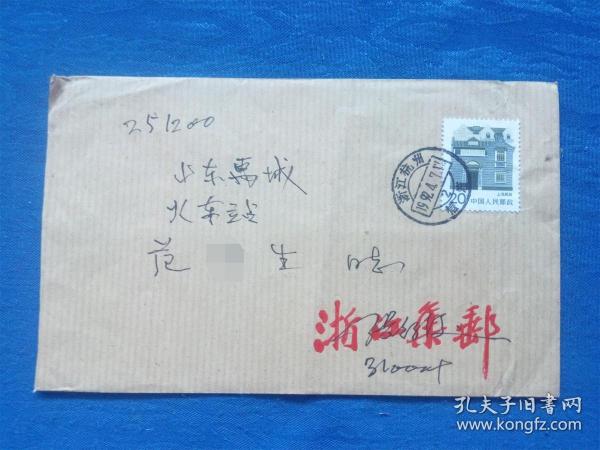 251200
山东禹城
火车站
范 生 同志
浙江杭州
1992.4.7.17
20
上海民居
中国人民邮政
浙江集邮
孔夫子旧书网
www.kongfz.com